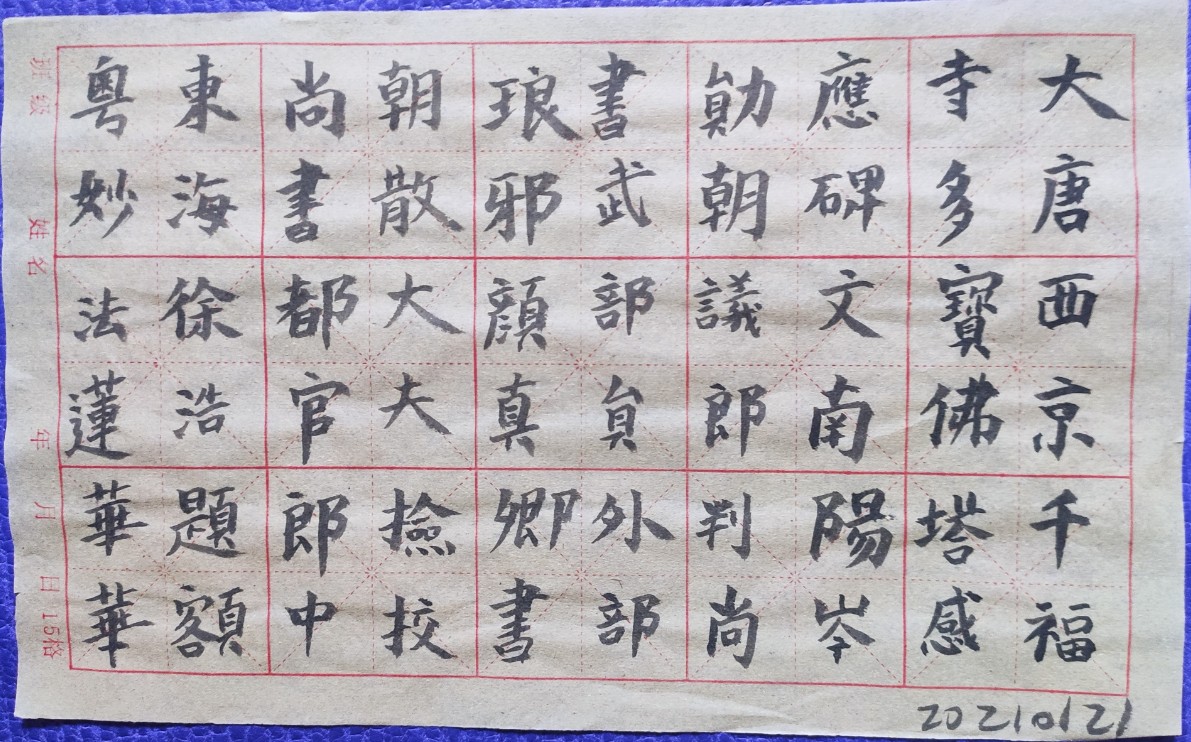 大唐西京千福
寺多寶佛塔感
應碑文南陽岑
勛朝議郎判尚
書武部員外部
琅邪顏真卿書
朝散大夫撿挍
尚書都官郎中
東海徐浩題額
粵妙法蓮華華
班级
姓名
年月日15格
20210121